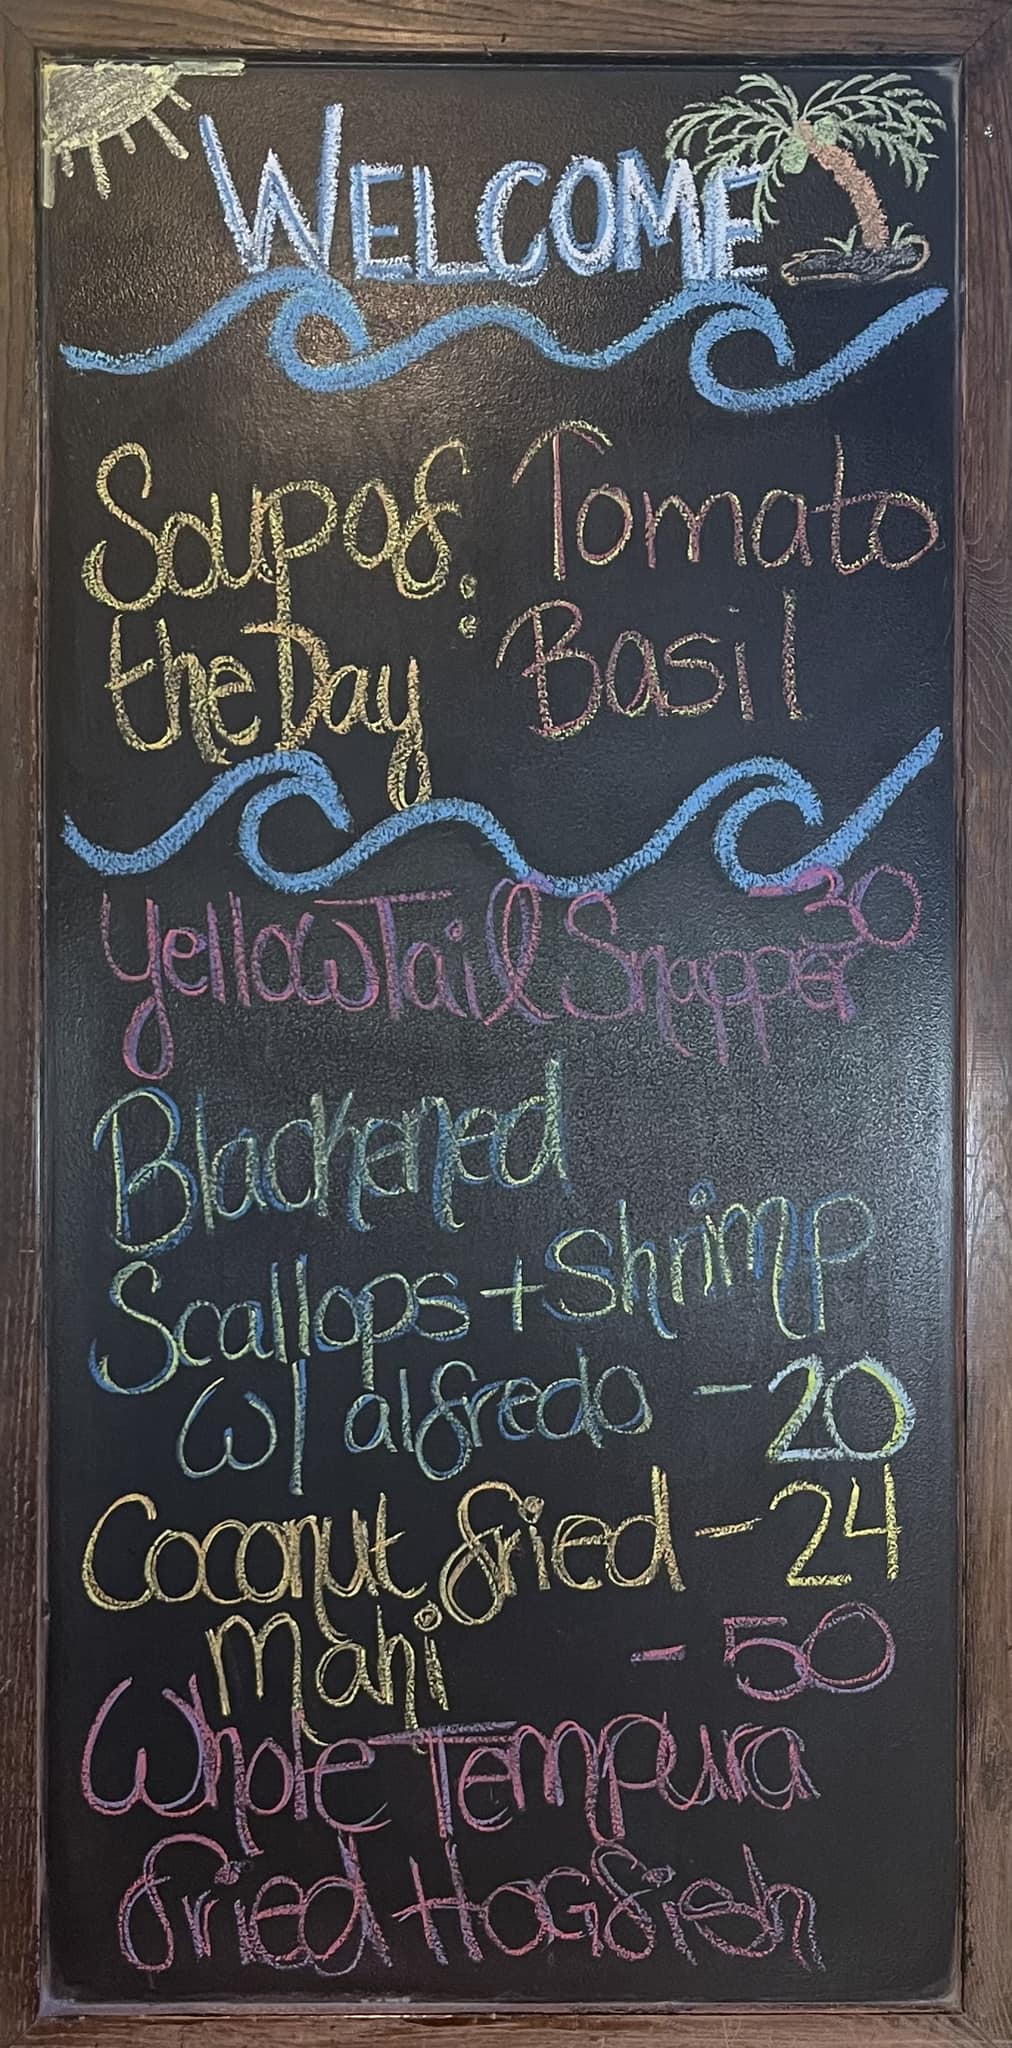 WELCOME
Soup of Tomato
the Day : Basil
YellowTail Snapper - 30
Blackened
Scallops + Shrimp
w/ alfredo - 20
Coconut fried - 24
Mahi
- 50
Whole Tempura
fried Hogfish